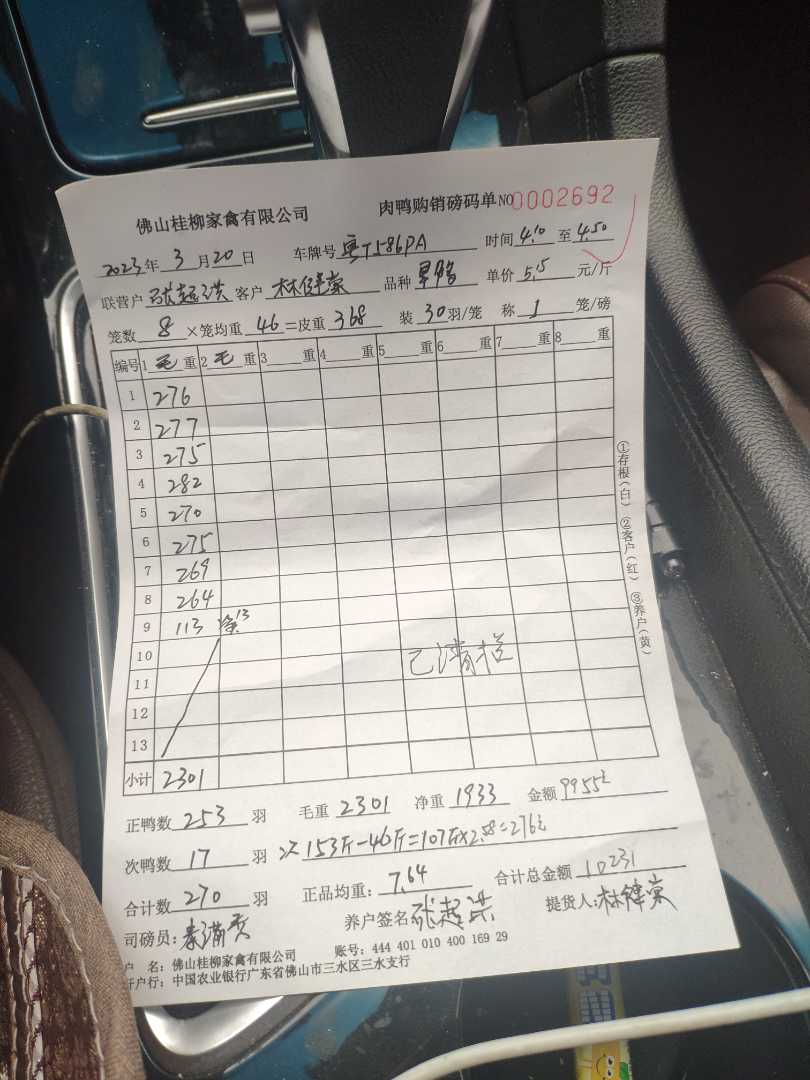 佛山桂柳家禽有限公司 肉鸭购销磅码单 NO 0002692
2023年 3 月 20 日 车牌号 粤T586PA 时间 4.10 至 4.50
联营户 张超洪 客户 林锋棠 品种 单价 5.15 元/斤
笼数 8 ×笼均重 46 =皮重 368 装 30 羽/笼 称 1 笼/磅
编号 1 毛 重 2 毛 重 3 重 4 重 5 重 6 重 7 重 8 重
1 276
2 277
3 275
4 282
5 270
6 275
7 269
8 264
9 113 13
10
已清栏
11
12
13
小计 2301
①存根(白) ②客户(红) ③养户(黄)
正鸭数 253 羽 毛重 2301 净重 1933 金额 9955元
次鸭数 17 羽 次153斤-46斤=107斤×2.58=276元
合计数 270 羽 正品均重: 7.64 合计总金额 10231
司磅员: 养户签名 张超洪 提货人: 林锋棠
户 名: 佛山桂柳家禽有限公司 账号: 444 401 010 400 169 29
开户行: 中国农业银行广东省佛山市三水区三水支行